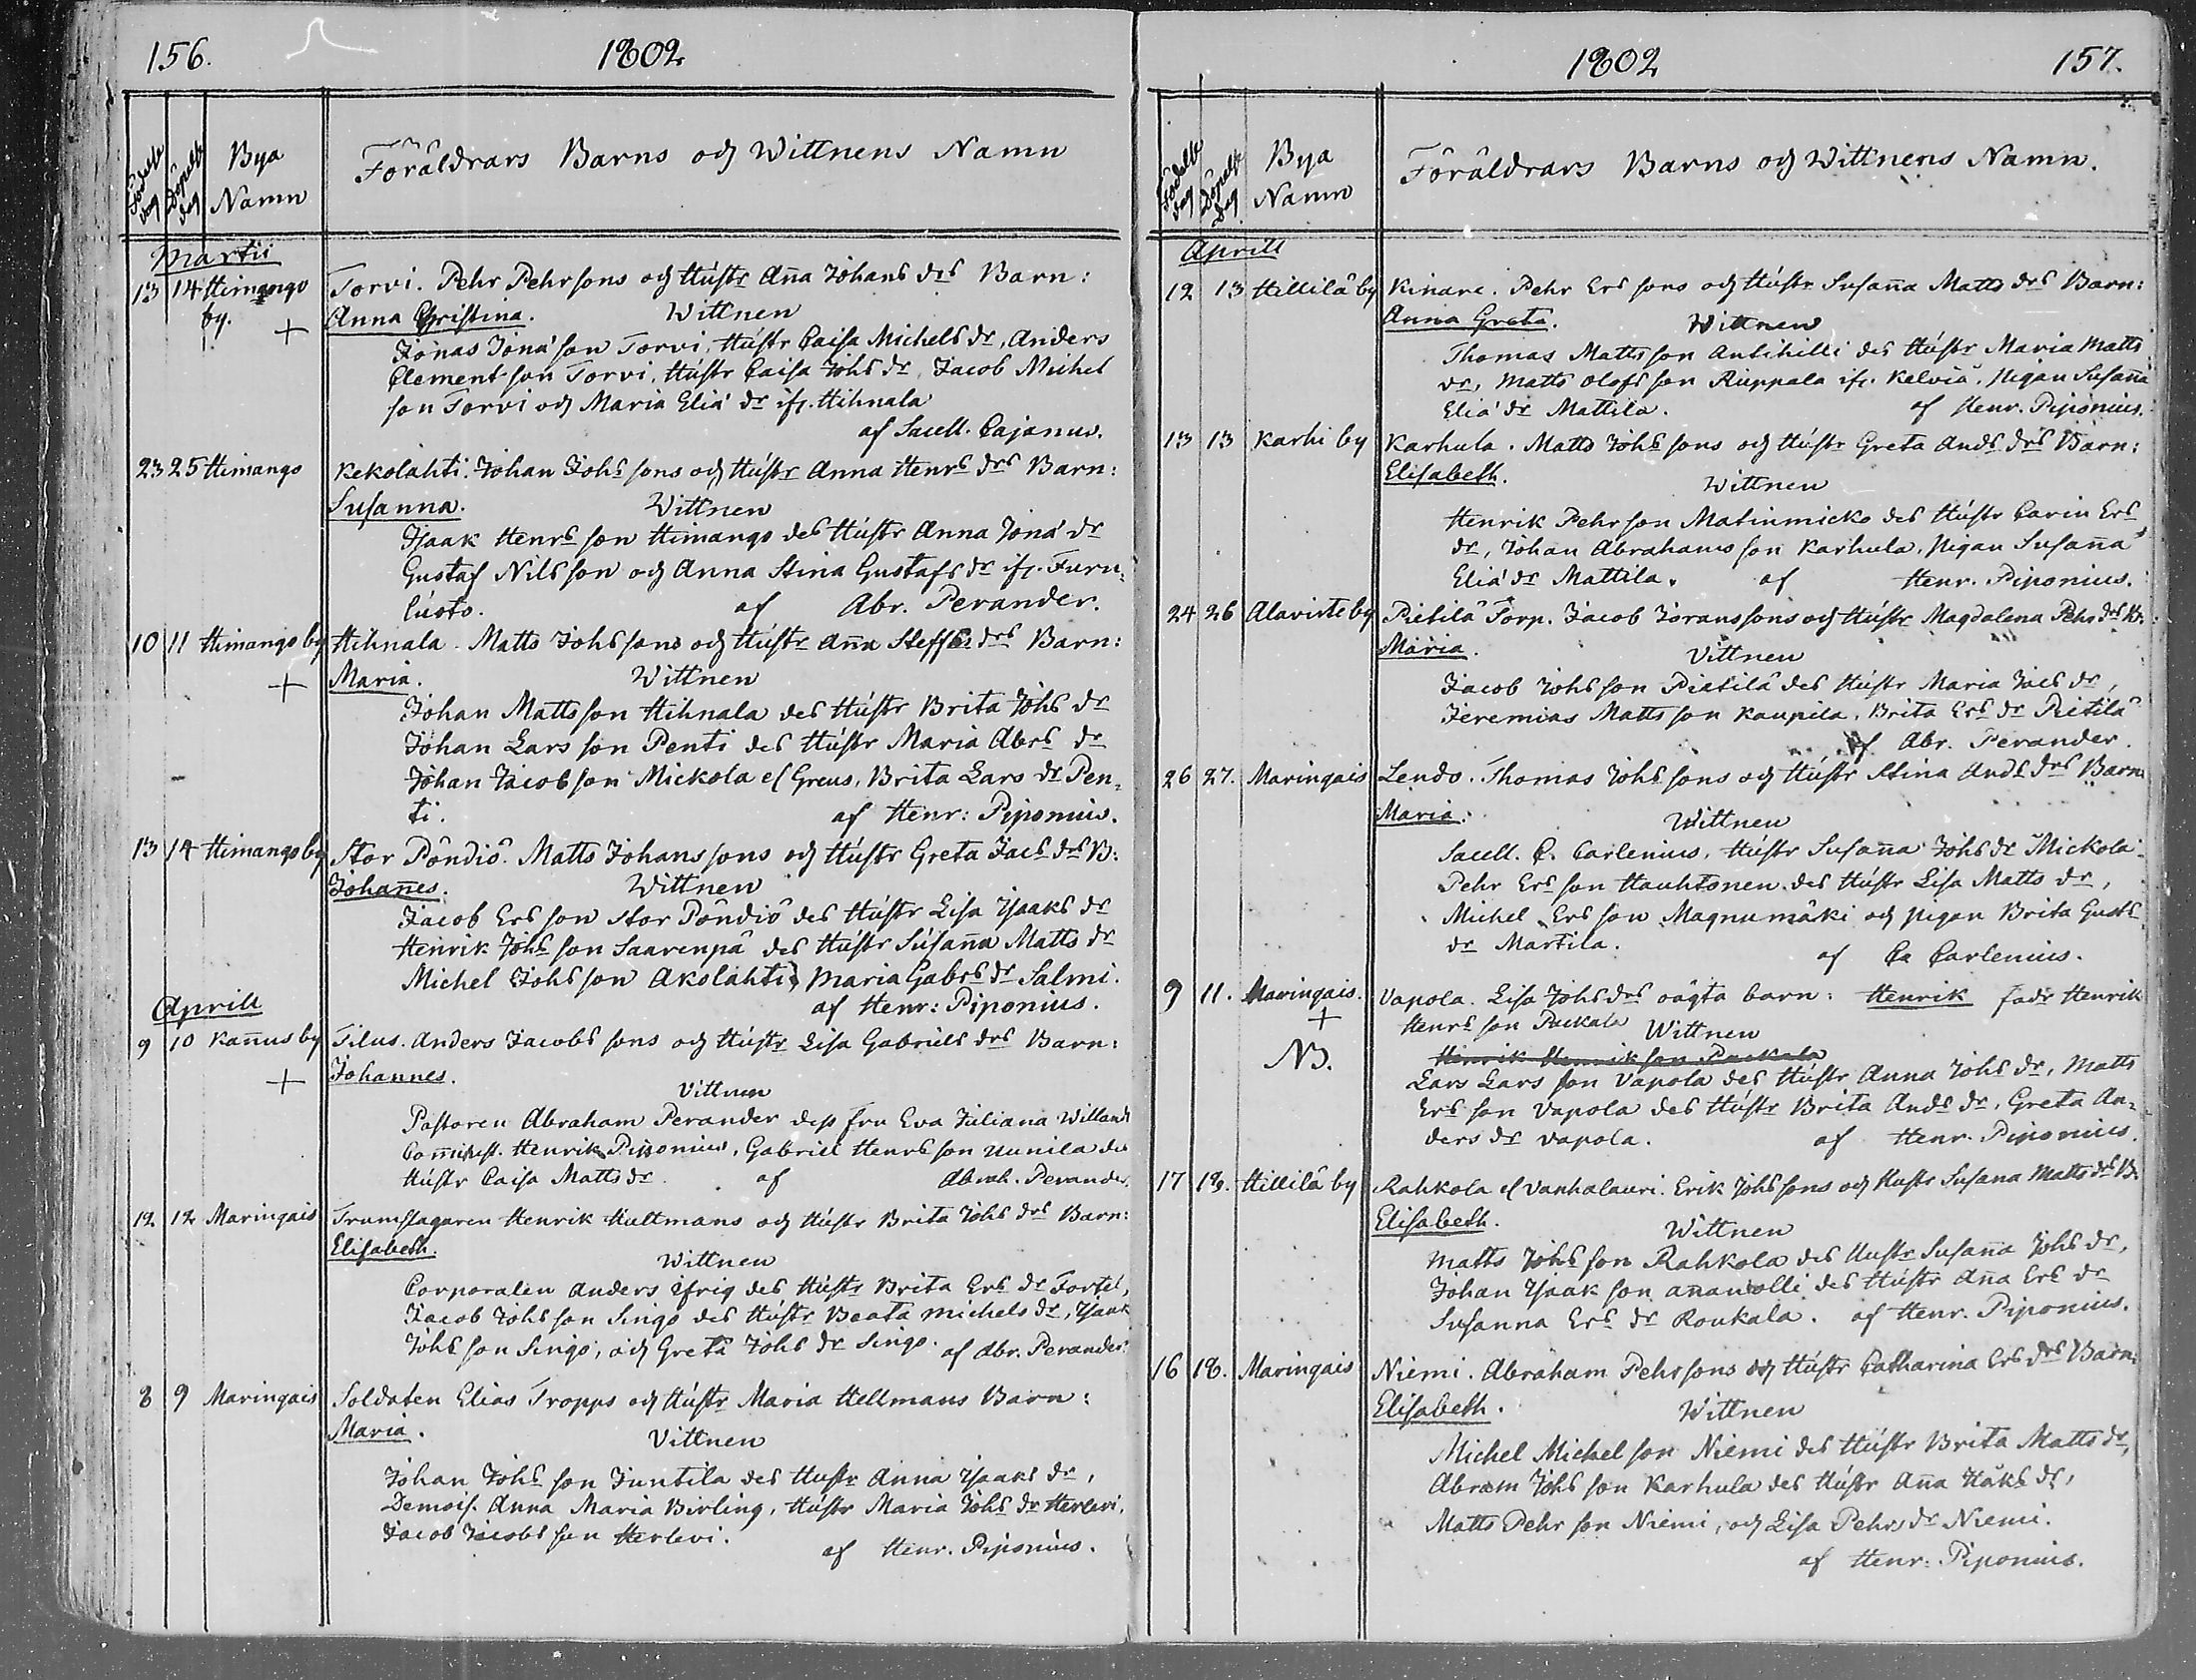 156.
1802
Födelse dag
Döpelse dag
Bya Namn
Föräldrars Barns och Wittnens Namn
Martii
13 14 Himango by. + Torvi. Pehr Pehrsons och Hustr Aña Johans drs Barn:
Anna Christina. Wittnen
Jonas Jona son Torvi, Hustr Caisa Michels dr, Anders
Clement son Torvi, Hustr Caisa Johs dr, Jacob Michel
son Torvi och Maria Elia dr ifr. Hihnala
af Sacell. Cajanus.
23 25 Himango Kekolahti. Johan Johs sons och Hustr Anna Henrs drs Barn:
Susanna. Wittnen
Isaak Henrs son Himango des Hustr Anna Jona dr
Gustaf Nils son och Anna Stina Gustafs dr ifr. Furu-
lusto. af Abr. Perander.
10 11 Himango by Hihnala. Matts Johs sons och Hustr Aña Steffs drs Barn:
+ Maria. Wittnen
Johan Matts son Hihnala des Hustr Brita Johs dr
Johan Lars son Penti des Hustr Maria Abrs dr
Johan Jacob son Mickola el Greus, Brita Lars dr Pen-
ti. af Henr: Piponius.
13 14 Himango by Stor Pöndiö. Matts Johans sons och Hustr Greta Jacs drs B:
Johañes. Wittnen
Jacob Ers son Stor Pöndiö des Hustr Lisa Isaaks dr
Henrik Johs son Saarenpä des Hustr Susaña Matts dr
Michel Johs son Akolahti, Maria Gabrs dr Salmi.
af Henr: Piponius.
Aprill
9 10 Kañus by Tilus. Anders Jacobs sons och Hustr Lisa Gabriels drs Barn:
+ Johannes. Vittnen
Pastoren Abraham Perander dess fru Eva Juliana Willand
Henrik Piponius, Gabriel Henrs son Uunila des
Hustr Caisa Matts dr. af Abrah. Perander.
12 12 Maringais Trumslagaren Henrik Hultmans och Hustr Brita Johs drs Barn:
Elisabeth. Wittnen
Corporalen Anders Ifrig des Hustr Brita Ers dr Fortel,
Jacob Johs son Singo des Hustr Beata Michels dr, Isaak
Johs son Singo, och Greta Johs dr Singo. af Abr. Perander.
8 9 Maringais Soldaten Elias Tropps och Hustr Maria Hellmans Barn:
Maria. Vittnen
Johan Johs son Juntila des Hustr Anna Isaaks dr,
Demois. Anna Maria Birling, Hustr Maria Johs dr Herlevi,
Jacob Jacobs son Herlevi. af Henr. Piponius.
1802
157.
Födelse dag
Döpelse dag
Bya Namn
Föräldrars Barns och Wittnens Namn.
Aprill
12 13 Hillilä by Kinare. Pehr Ers sons och Hustr Susaña Matts drs Barn:
Anna Greta. Wittnen
Thomas Matts son Antihilli des Hustr Maria Matts
dr, Matts Olofs son Ruppala ifr. Kelviä. Pigan Susaña
Elia dr Mattila. af Henr. Piponius.
13 13 Karhi by Karhula. Matts Johs sons och Hustr Greta Ands drs Barn:
Elisabeth. Wittnen
Henrik Pehr son Matinmicko des Hustr Carin Ers
dr, Johan Abrahams son Karhula, Pigan Susaña
Elia dr Mattila. af Henr. Piponius.
24 26 Alaviste by Pietilä Torp. Jacob Jöranssons och Hustr Magdalena Pehrs drs B:
Maria. Vittnen
Jacob Johs son Pietilä des Hustr Maria Jacs dr,
Jeremias Matts son Kaupila, Brita Ers dr Pietilä
af Abr. Perander.
26 27. Maringais Lendo. Thomas Johs sons och Hustr Stina Ands drs Barn
Maria: Wittnen
Sacell. C. Carlenius, Hustr Susaña Johs dr Mickola
Pehr Ers son Hauhtonen des Hustr Lisa Matts dr,
Michel Ers son Magnumäki och Pigan Brita Gusts
dr Martila. af Ca Carlenius.
9 11. Maringais. Vapola. Lisa Johs drs oägta barn: Henrik fadr Henrik
+ Henrs son Puckala Wittnen
NB. Hinrik Henrik son Puckala
Lars Lars son Vapola des Hustr Anna Johs dr, Matts
Ers son Vapola des Hustr Brita Ands dr, Greta An-
ders dr Vapola. af Henr. Piponius.
17 18. Hillilä by Rahkola el Vanhalauri. Erik Johs sons och Hustr Susana Matts drs B.
Elisabeth. Wittnen
Matts Johs son Rahkola des Hustr Susaña Johs dr,
Johan Isaak son Añanolli des Hustr Aña Ers dr
Susanna Ers dr Roukala. af Henr. Piponius.
16 18. Maringais Niemi. Abraham Pehrsons och Hustr Catharina Ers drs Barn:
Elisabeth. Wittnen
Michel Michel son Niemi des Hustr Brita Matts dr,
Abram Johs son Karhula des Hustr Aña Håks dr,
Matts Pehr son Niemi, och Lisa Pehrs dr Niemi.
af Henr: Piponius.